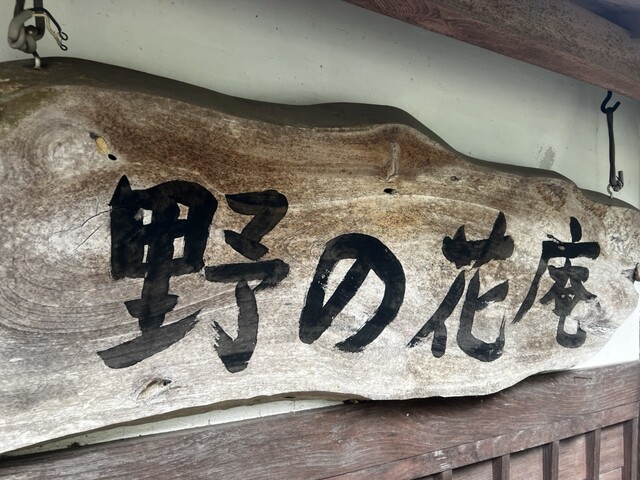 野の花庵